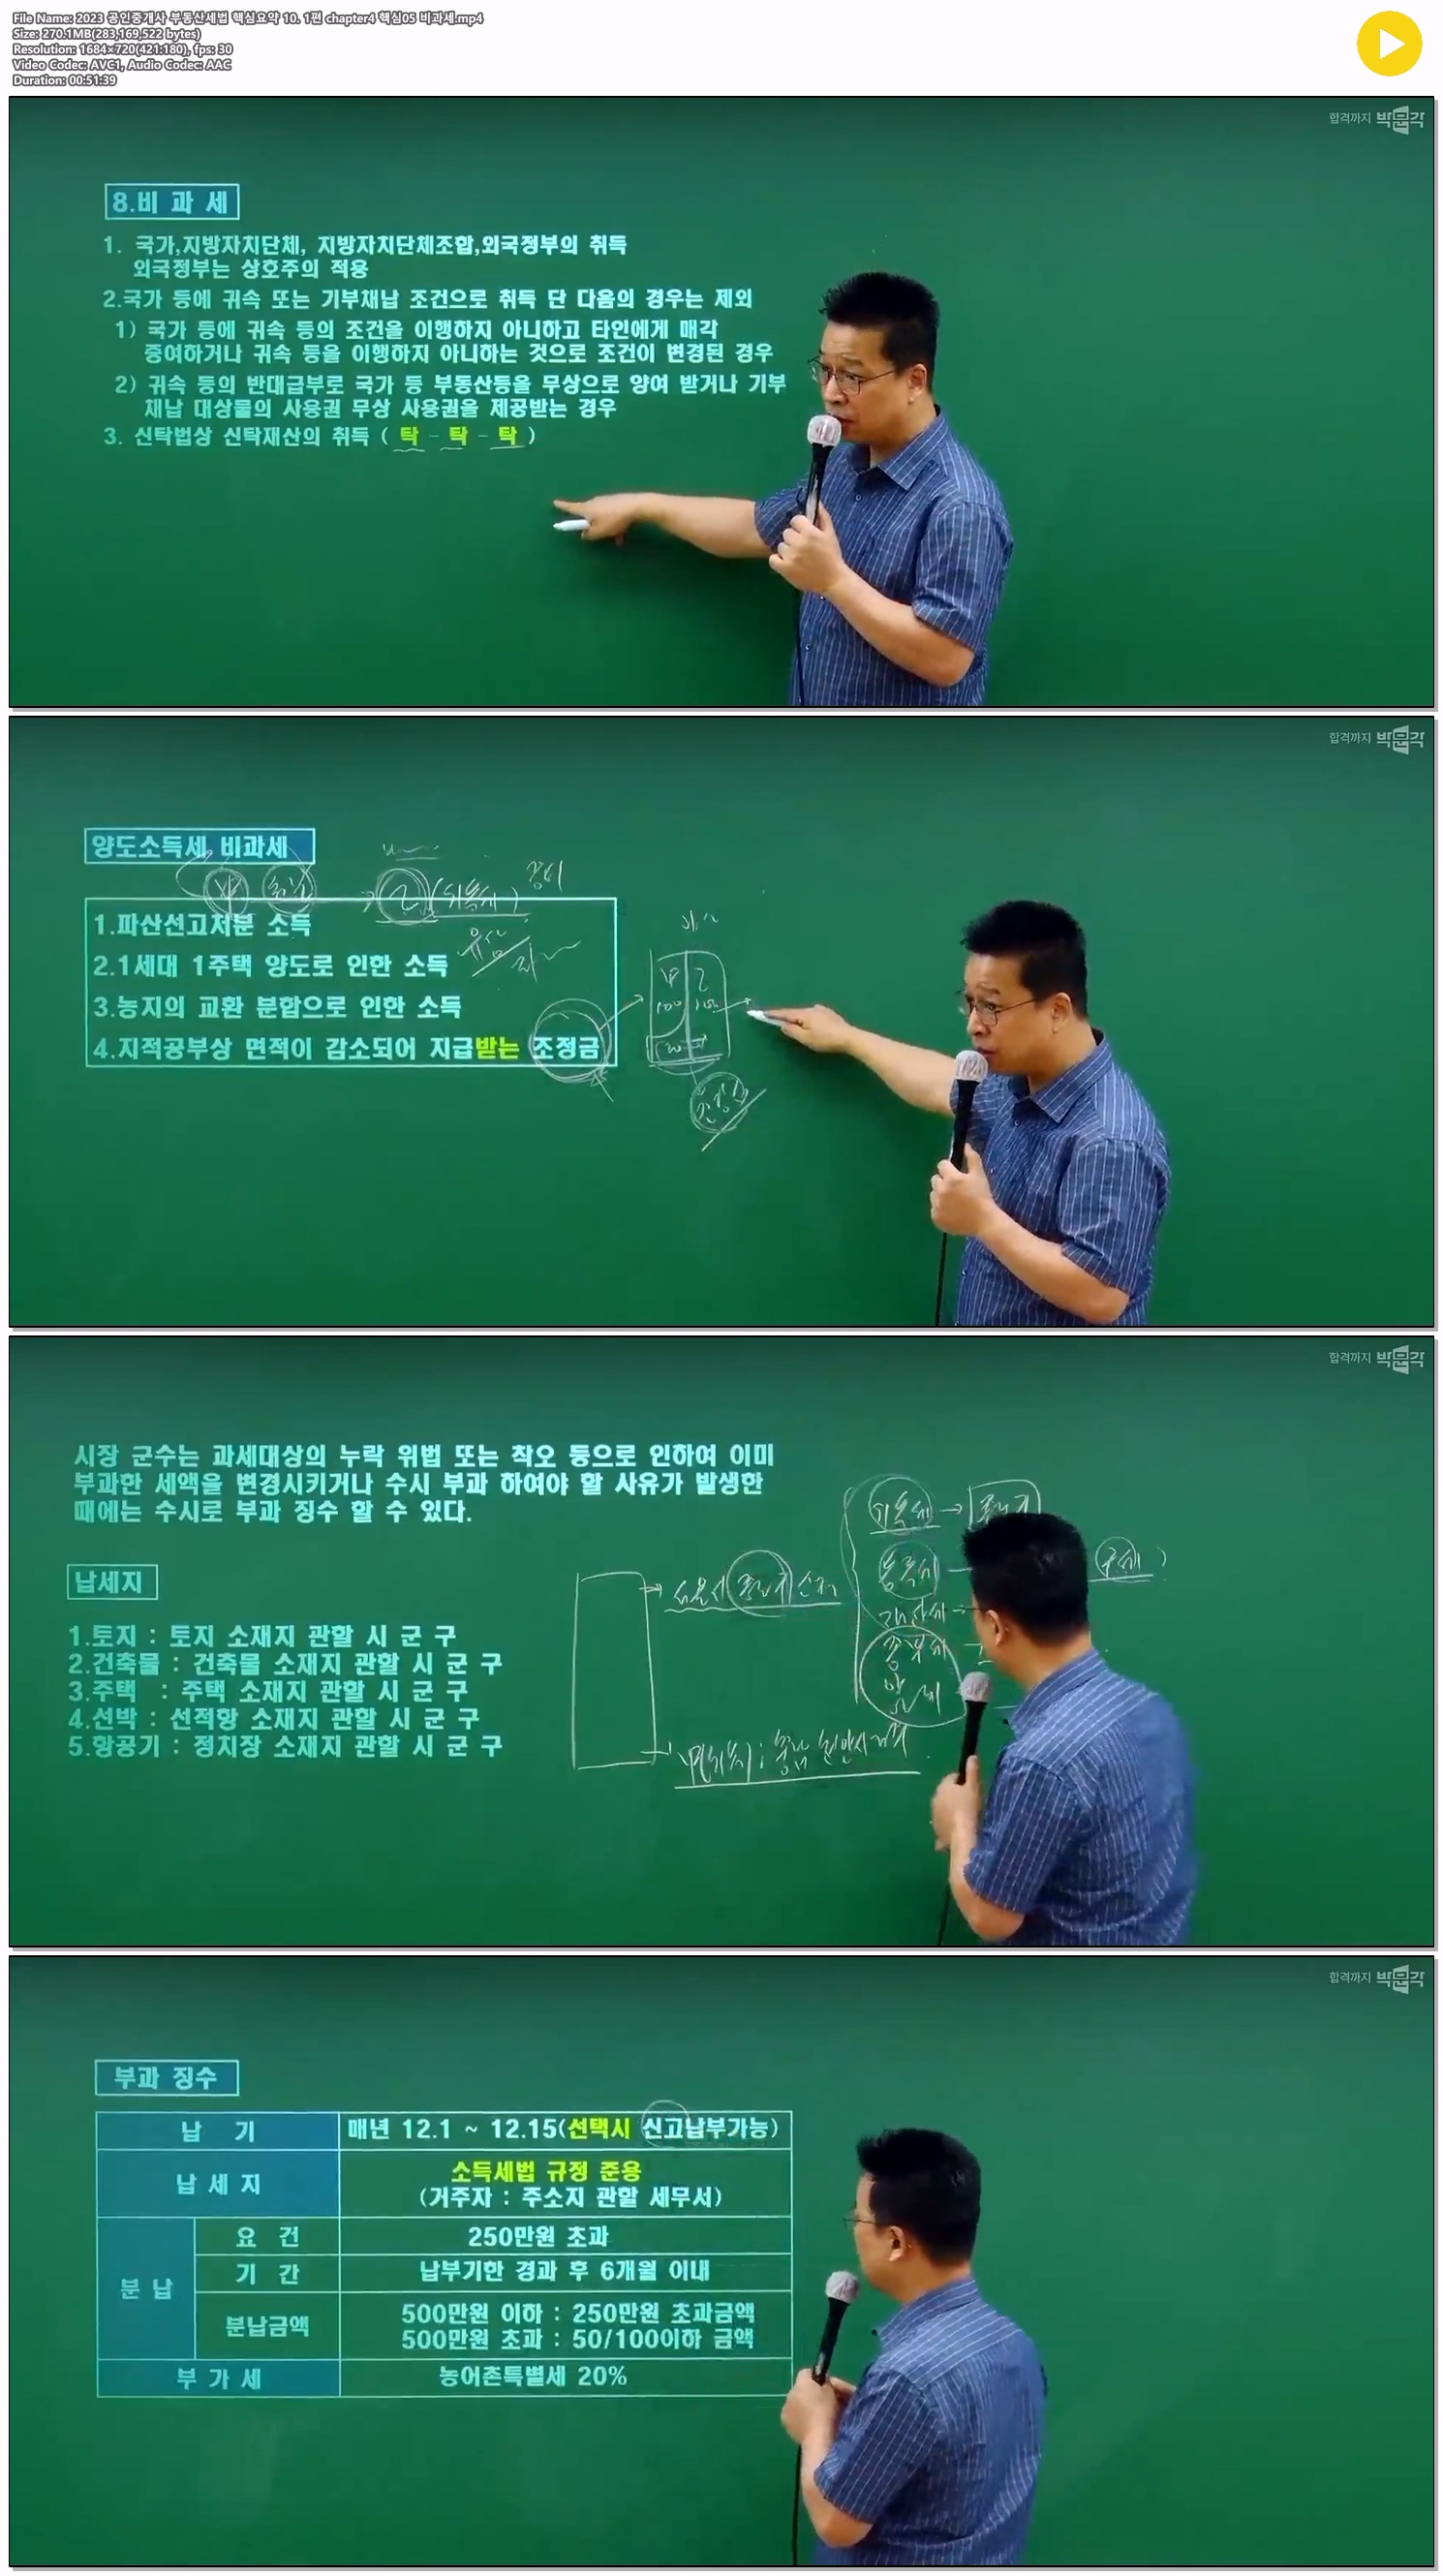 File Name: 2023 공인중개사 부동산세법 핵심요약 10. 1편 chapter4 핵심05 비과세.mp4
Size: 270.1MB(283,169,522 bytes)
Resolution: 1684×720(421:180), fps: 30
Video Codec: AVC1, Audio Codec: AAC
Duration: 00:51:39
합격까지 박문각
8.비 과 세
1. 국가,지방자치단체, 지방자치단체조합,외국정부의 취득
외국정부는 상호주의 적용
2.국가 등에 귀속 또는 기부채납 조건으로 취득 단 다음의 경우는 제외
1) 국가 등에 귀속 등의 조건을 이행하지 아니하고 타인에게 매각
증여하거나 귀속 등을 이행하지 아니하는 것으로 조건이 변경된 경우
2) 귀속 등의 반대급부로 국가 등 부동산등을 무상으로 양여 받거나 기부
채납 대상물의 사용권 무상 사용권을 제공받는 경우
3. 신탁법상 신탁재산의 취득 ( 탁 - 탁 - 탁 )
합격까지 박문각
양도소득세 비과세
1.파산선고처분 소득
2.1세대 1주택 양도로 인한 소득
3.농지의 교환 분합으로 인한 소득
4.지적공부상 면적이 감소되어 지급받는 조정금
합격까지 박문각
시장 군수는 과세대상의 누락 위법 또는 착오 등으로 인하여 이미
부과한 세액을 변경시키거나 수시 부과 하여야 할 사유가 발생한
때에는 수시로 부과 징수 할 수 있다.
납세지
1.토지 : 토지 소재지 관할 시 군 구
2.건축물 : 건축물 소재지 관할 시 군 구
3.주택 : 주택 소재지 관할 시 군 구
4.선박 : 선적항 소재지 관할 시 군 구
5.항공기 : 정치장 소재지 관할 시 군 구
합격까지 박문각
부과 징수
납 기 매년 12.1 ~ 12.15(선택시 신고납부가능)
납 세 지 소득세법 규정 준용
(거주자 : 주소지 관할 세무서)
분 납
요 건 250만원 초과
기 간 납부기한 경과 후 6개월 이내
분납금액 500만원 이하 : 250만원 초과금액
500만원 초과 : 50/100이하 금액
부 가 세 농어촌특별세 20%